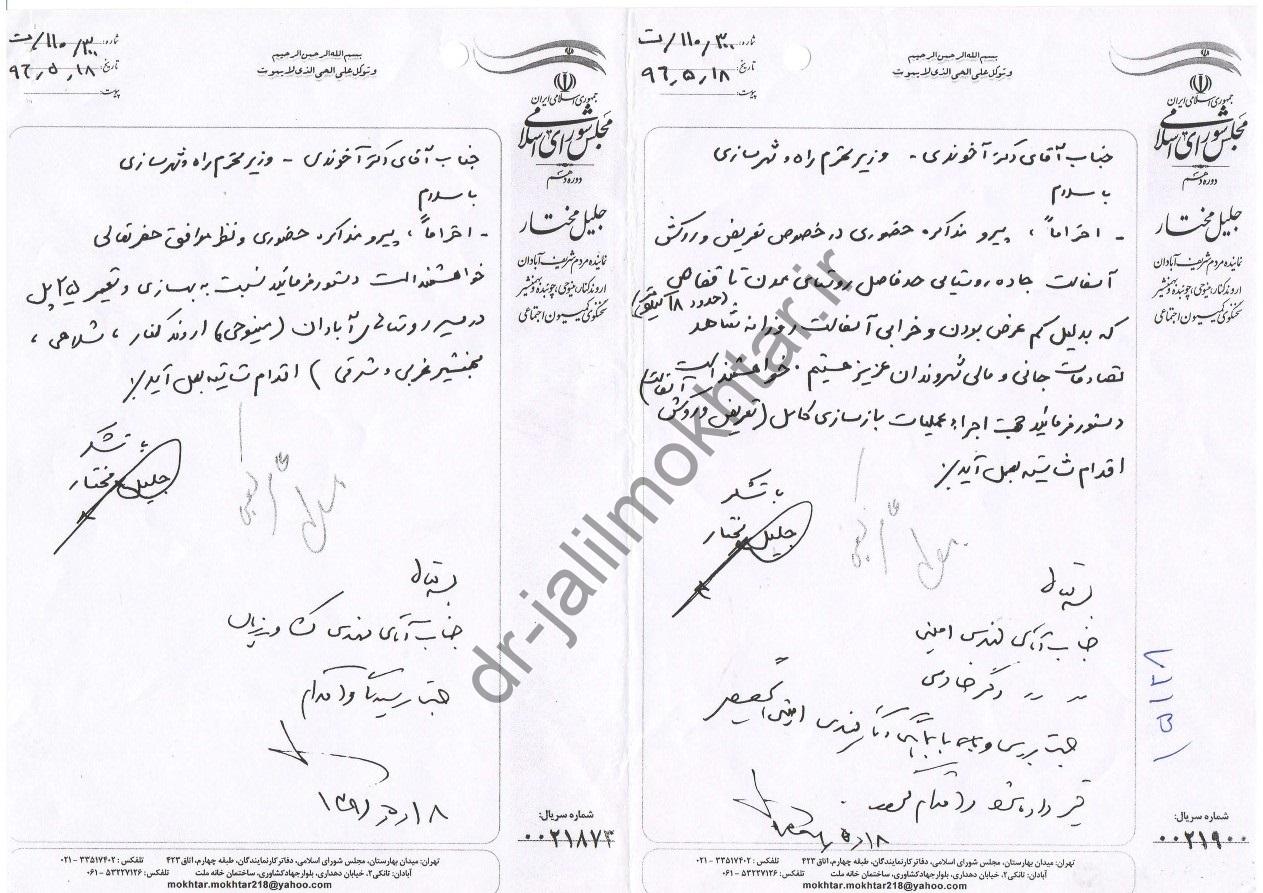 بسم الله الرحمن الرحیم
و توکل علی الحی الذی لا یموت
شماره: ۳۰۰/۱۱۰/ت
تاریخ: ۹۶,۵,۱۸
پیوست:
جمهوری اسلامی ایران
مجلس شورای اسلامی
دوره دهم
جلیل مختار
نماینده مردم شریف آبادان
اروندکنار، مینوحی، چوئبده و بهمنشیر
سخنگوی کمیسیون اجتماعی
جناب آقای دکتر آخوندی - وزیر محترم راه و شهرسازی
با سلام
- احتراماً، پیرو مذاکره حضوری در خصوص تعریض و روکش
آسفالت جاده روستایی حدفاصل روستای عمدن تا قفاص
(حدود ۱۸ کیلومتر)
که بدلیل کم عرض بودن و خرابی آسفالت روزانه شاهد
تصادمات جانی و مالی شهروندان عزیز هستیم. خواهشمند است
دستور فرمائید جهت اجراء عملیات بازسازی کامل (تعریض و روکش آسفالت)
اقدام شایسته بعمل آید.
با تشکر
جلیل مختار
بسمه تعالی
جناب آقای مهندس امینی
〃 〃 دکتر خادمی
جهت بررسی و
قرار داده شود و اقدام گردد.
۱۸/۵/
۱۵۱۳۸
شماره سریال:
۰۰۲۱۹۰۰
تهران: میدان بهارستان، مجلس شورای اسلامی، دفاتر کار نمایندگان، طبقه چهارم، اتاق ۴۲۳ تلفکس: ۳۳۵۱۷۴۰۲ - ۰۲۱
آبادان: تانکی۲، خیابان دهداری، بلوار جهاد کشاورزی، ساختمان خانه ملت تلفکس: ۵۳۲۲۷۱۲۶ - ۰۶۱
mokhtar.mokhtar218@yahoo.com
بسم الله الرحمن الرحیم
و توکل علی الحی الذی لا یموت
شماره: ۳۰۰/۱۱۰/ت
تاریخ: ۹۶,۵,۱۸
پیوست:
جمهوری اسلامی ایران
مجلس شورای اسلامی
دوره دهم
جلیل مختار
نماینده مردم شریف آبادان
اروندکنار، مینوحی، چوئبده و بهمنشیر
سخنگوی کمیسیون اجتماعی
جناب آقای دکتر آخوندی - وزیر محترم راه و شهرسازی
با سلام
- احتراماً، پیرو مذاکره حضوری و نظر موافق حضرتعالی
خواهشمند است دستور فرمائید نسبت به بهسازی و تعمیر ۲۵ پل
در مسیر روستاهای آبادان (مینوحی، اروندکنار، شلاحی،
بهمنشیر غربی و شرقی) اقدام شایسته بعمل آید.
با تشکر
جلیل مختار
بسمه تعالی
جناب آقای مهندس کشاورزیان
جهت رسیدگی و اقدام
۱۸/۵/۱۳۹۶
شماره سریال:
۰۰۲۱۸۷۳
تهران: میدان بهارستان، مجلس شورای اسلامی، دفاتر کار نمایندگان، طبقه چهارم، اتاق ۴۲۳ تلفکس: ۳۳۵۱۷۴۰۲ - ۰۲۱
آبادان: تانکی۲، خیابان دهداری، بلوار جهاد کشاورزی، ساختمان خانه ملت تلفکس: ۵۳۲۲۷۱۲۶ - ۰۶۱
mokhtar.mokhtar218@yahoo.com
dr-jalilmokhtar.ir